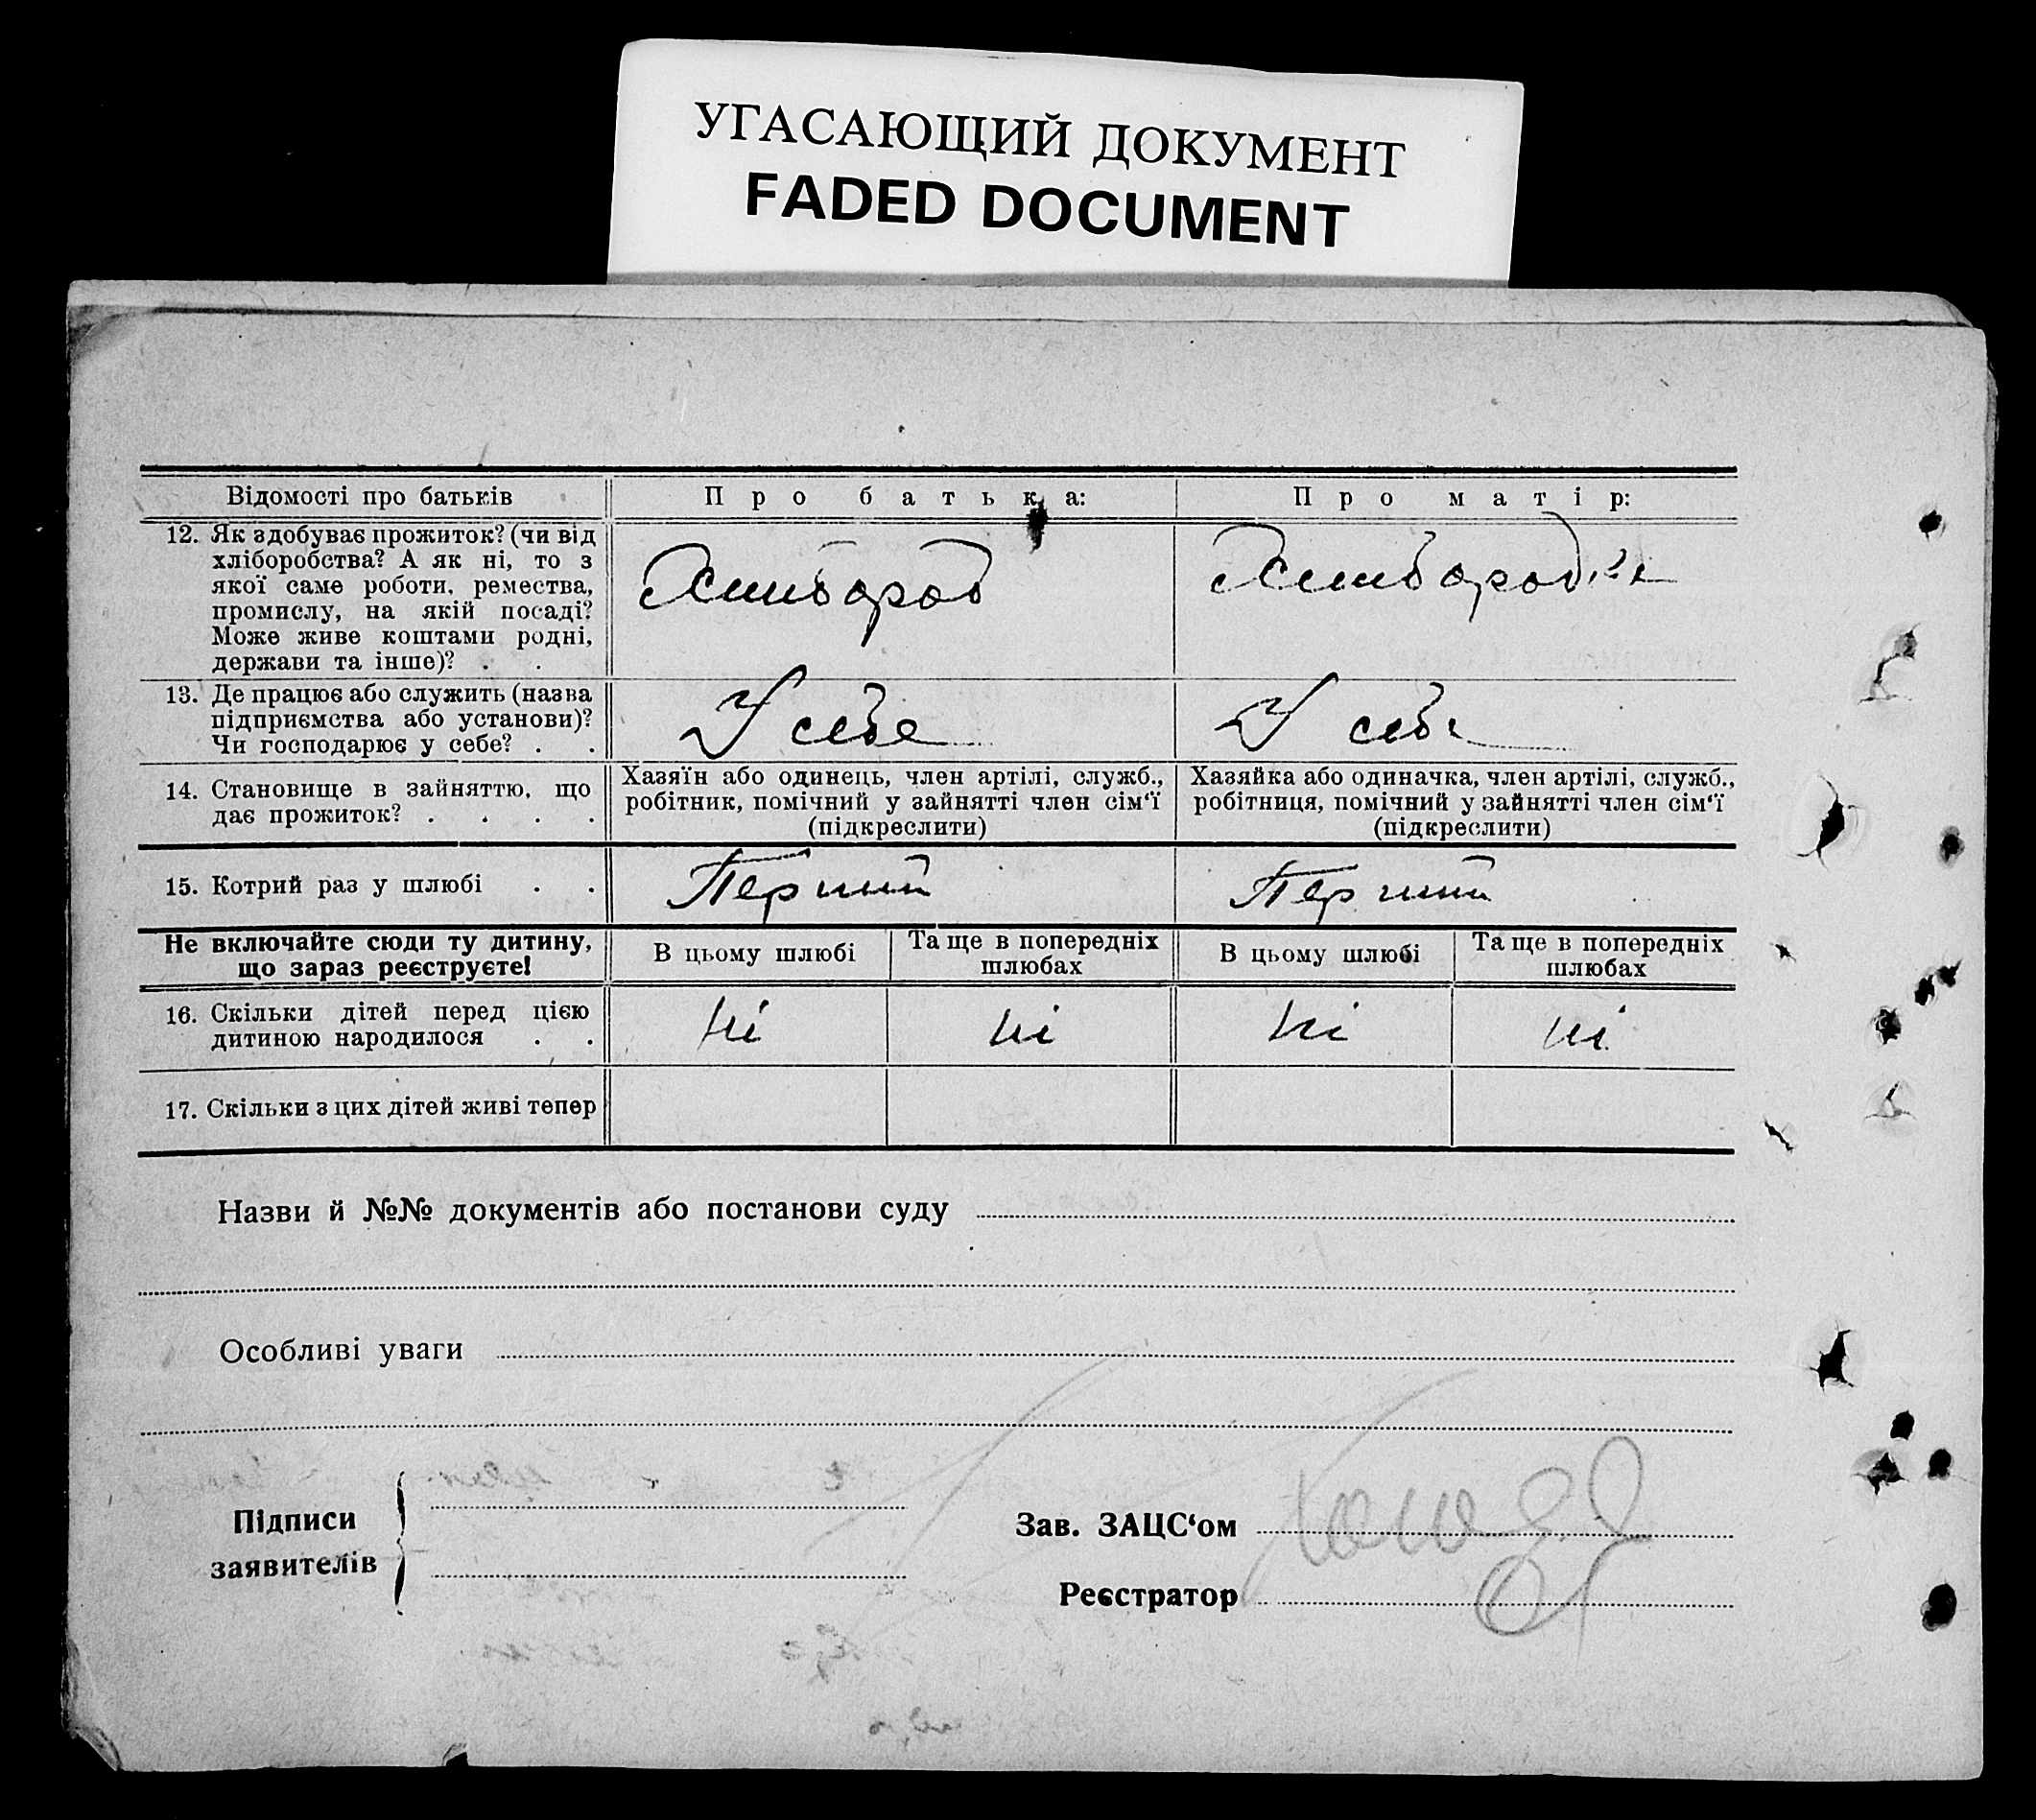 УГАСАЮЩИЙ ДОКУМЕНТ
FADED DOCUMENT
Відомості про батьків
Про батька:
Про матір:
12. Як здобуває прожиток? (чи від
хліборобства? А як ні, то з
якої саме роботи, ремества,
промислу, на якій посаді?
Може живе коштами родні,
держави та інше)? . .
Хлибороб
Хлибородка
13. Де працює або служить (назва
підприємства або установи)?
Чи господарює у себе? . .
У себе
У себе
14. Становище в зайняттю, що
дає прожиток? . . . .
Хазяїн або одинець, член артілі, служб.,
робітник, помічний у зайнятті член сім‘ї
(підкреслити)
Хазяйка або одиначка, член артілі, служб.,
робітниця, помічний у зайнятті член сім‘ї
(підкреслити)
15. Котрий раз у шлюбі . .
Перший
Перший
Не включайте сюди ту дитину,
що зараз реєструєте!
В цьому шлюбі
Та ще в попередніх
шлюбах
В цьому шлюбі
Та ще в попередніх
шлюбах
16. Скільки дітей перед цією
дитиною народилося . .
ні
ні
ні
ні
17. Скільки з цих дітей живі тепер
Назви й №№ документів або постанови суду
Особливі уваги
Підписи
заявителів
Зав. ЗАЦС‘ом
Реєстратор